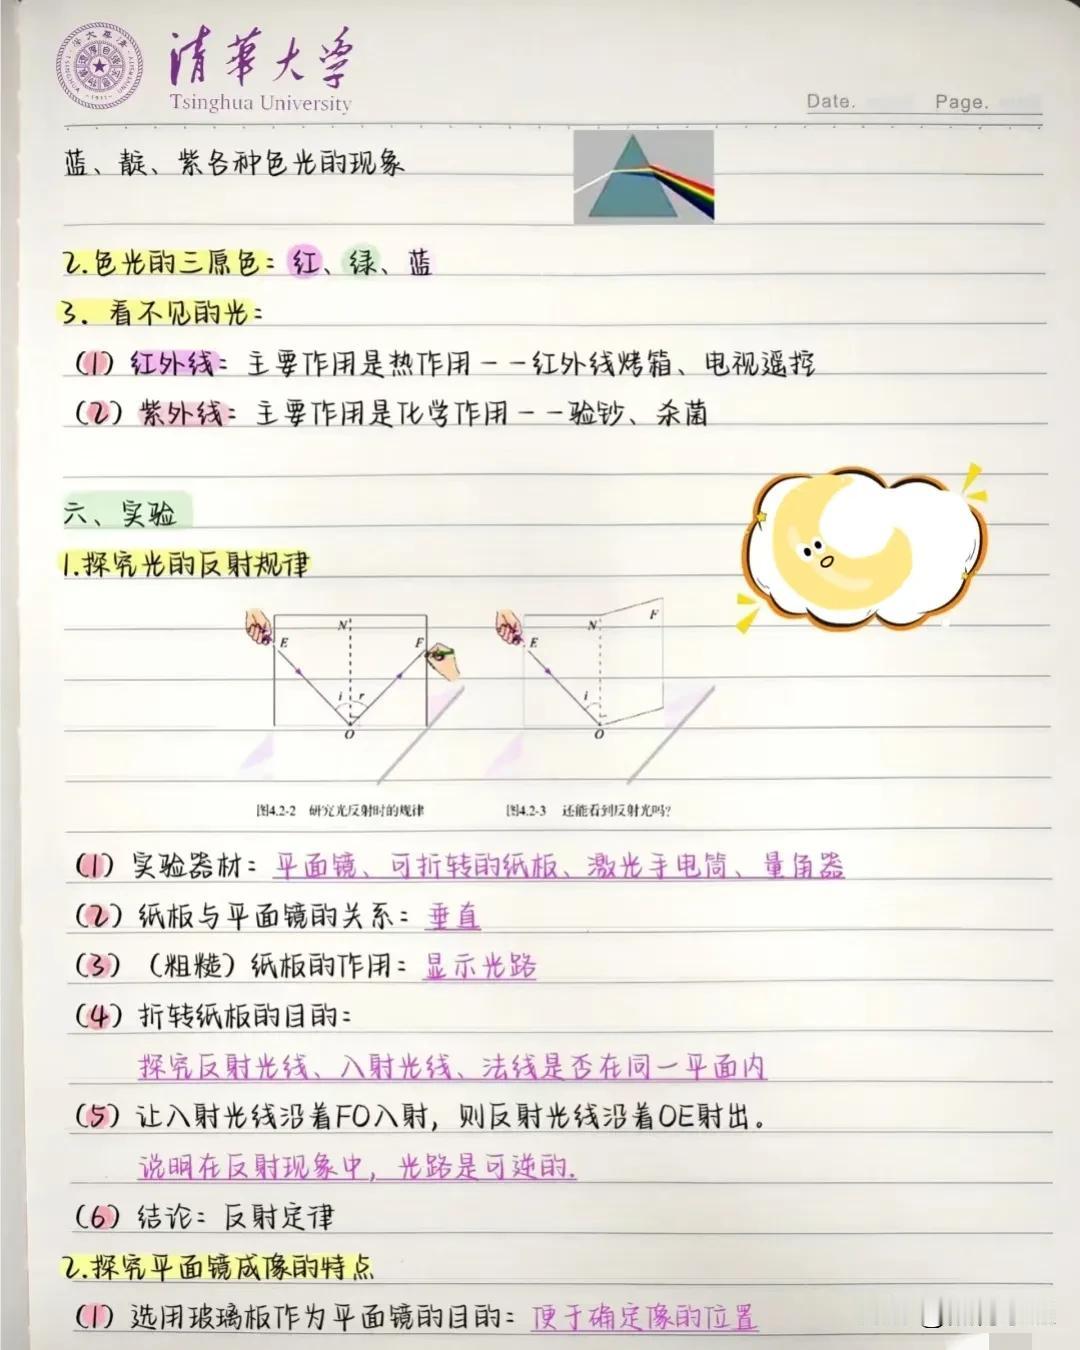 清华大学
Tsinghua University
Date. Page.
蓝、靛、紫各种色光的现象
2.色光的三原色：红、绿、蓝
3. 看不见的光：
(1) 红外线：主要作用是热作用——红外线烤箱、电视遥控
(2) 紫外线：主要作用是化学作用——验钞、杀菌
六、实验
1.探究光的反射规律
E N F i r O
E N F i O
图4.2-2 研究光反射时的规律
图4.2-3 还能看到反射光吗?
(1) 实验器材：平面镜、可折转的纸板、激光手电筒、量角器
(2) 纸板与平面镜的关系：垂直
(3) （粗糙）纸板的作用：显示光路
(4) 折转纸板的目的：
探究反射光线、入射光线、法线是否在同一平面内
(5) 让入射光线沿着FO入射，则反射光线沿着OE射出。
说明在反射现象中，光路是可逆的.
(6) 结论：反射定律
2.探究平面镜成像的特点
(1) 选用玻璃板作为平面镜的目的：便于确定像的位置